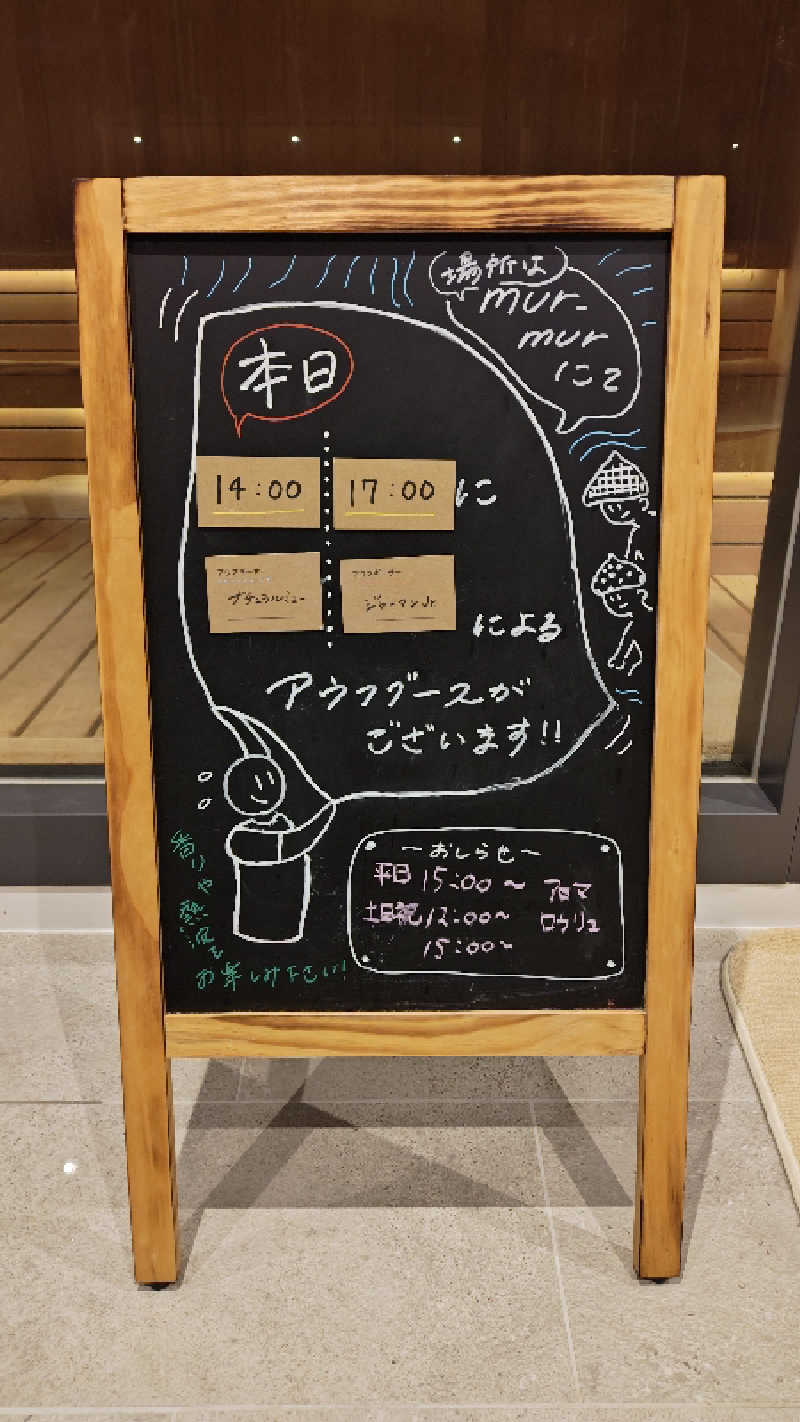 場所は
mur-
mur
にて
本日
14:00
17:00
に
アウフギーサー
アウフギーサー
ナチュラルミュー
ジャーマンJr
による
アウフグースが
ございます!!
香りや熱波を
お楽しみ下さい!
〜おしらせ〜
平日 15:00〜
土日祝 12:00〜
15:00〜
アロマ
ロウリュ